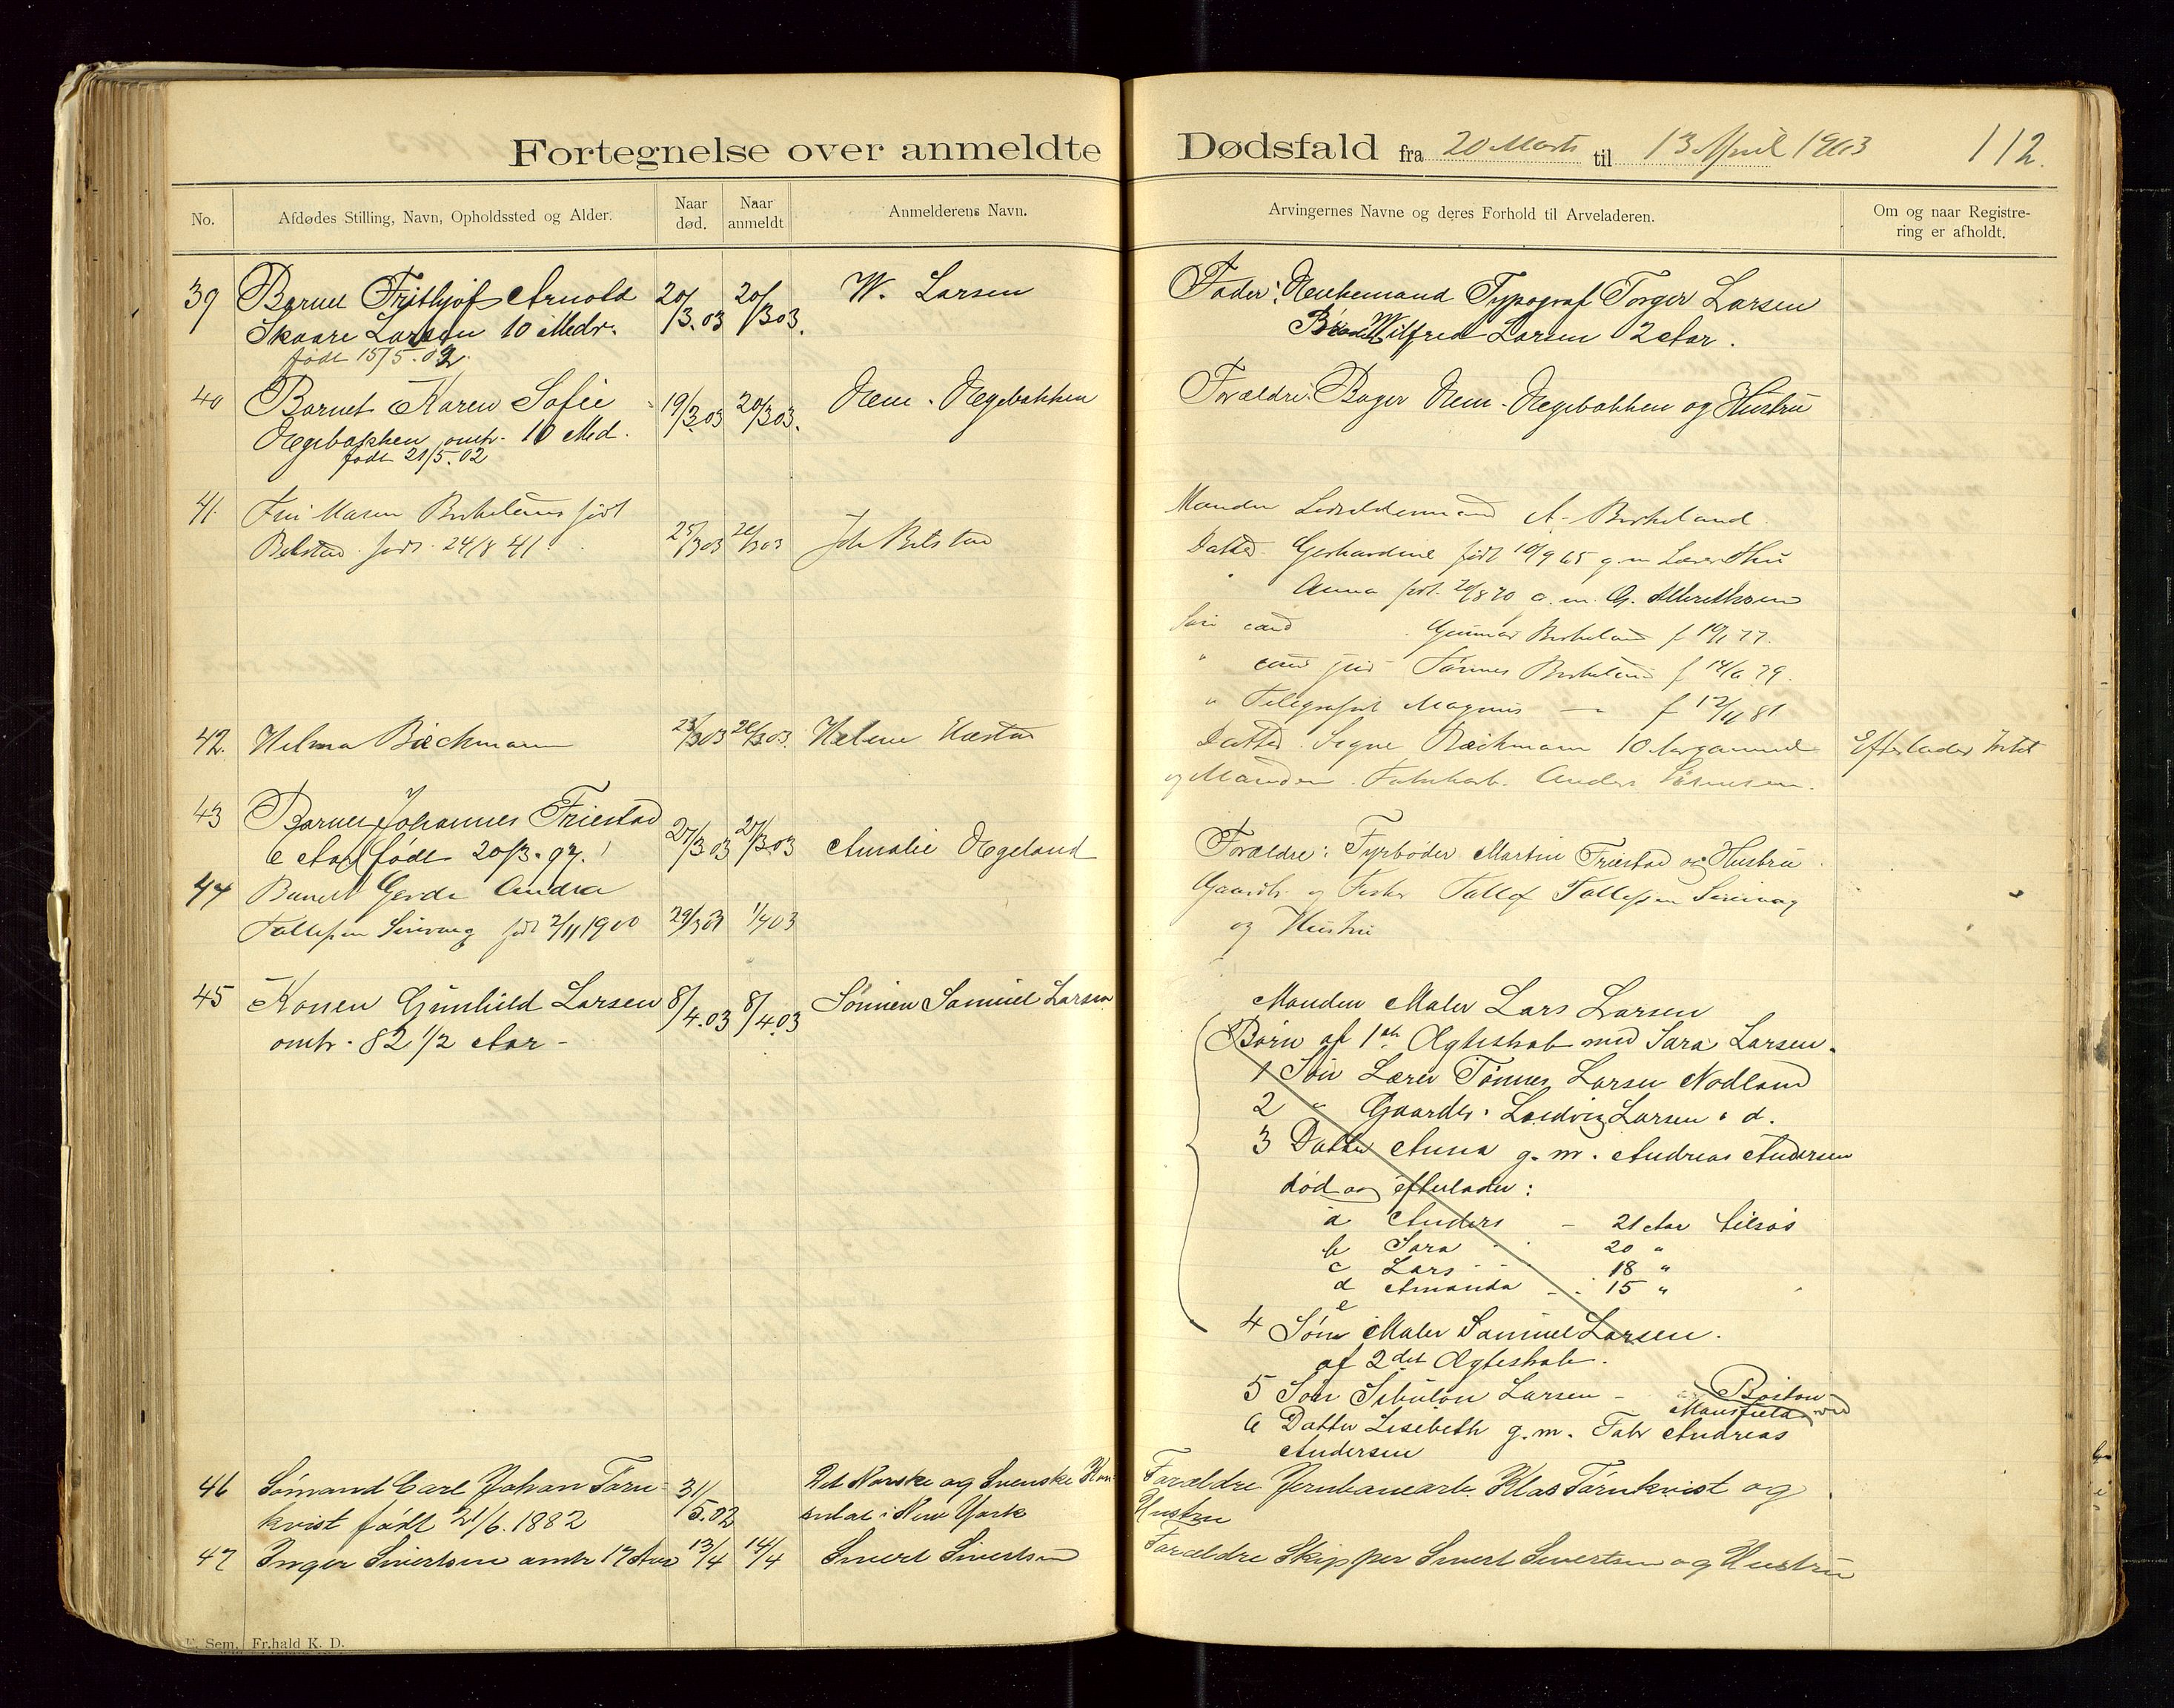 Fortegnelse over anmeldte Dødsfald fra 20 Marts til 13 April 1903 112.
No. Afdødes Stilling, Navn, Opholdssted og Alder. Naar død. Naar anmeldt Anmelderens Navn. Arvingernes Navne og deres Forhold til Arveladeren. Om og naar Registrering er afholdt.
39 Barnet Frithjof Arnold 20/3.03 20/3 03. W. Larsen Fader: Enkemand Typograf Torger Larsen
Skaare Larsen 10 Mdr. Broder Wilfred Larsen 2 Aar.
født 15/5.02.
40 Barnet Karen Sofie 19/3.03 20/3 03. Hegebokken Forældre: Bager Hegebokken og Hustru
Hegebokken omtr. 10 Md.
født 21/5.02
41. Fru Maren Birkeland født Manden A. Birkeland.
Belstad født 24/8 41. 25/3 03 26/3 03 Belstad Datter Gerhardine født 10/9 65 g. m. Lærer
" Anna født 20/8 70 g. m. G. Albrethsen
Søn cand Gunnar Birkeland f 77.
" cand jur Tønnes Birkeland f 14/6 79.
" Telegrafist Magnus — f 12/11 81
42. Helma Bäckmann 23/3 03 26/3 03. Helene Datter Signe Bäckmann 10 Aar gammel Efterlader Intet
og Manden. Fabrikarb. Anders
43 Barnet Johannes Friestad
6 Aar født 20/3.97. 27/3 03 27/3 03 Amalie Ægeland Forældre: Fyrbøder Martin Friestad og Hustru
44 Barnet Gerda Andrea Gaardb. og Fisker Tollef Tollefsen Sirevaag
Tollefsen Sirevaag født 2/11 1900 29/3 03 1/4 03 og Hustru
45 Konen Gunhild Larsen 8/4.03 8/4.03 Sønnen Samuel Larsen Manden Maler Lars Larsen
omtr. 82 1/2 Aar - Børn af 1ste Ægteskab med Sara Larsen.
1 Søn Lærer Tønnes Larsen Nodland
2 " Gaardbr. Ludvig Larsen " d.
3 Datter Anna g. m. Andreas Andersen
død og efterlader:
a Anders - 21 Aar tilsøs
b Sara 20 "
c Lars 18 "
d Amanda 15 "
e
4 Søn Maler Samuel Larsen.
af 2det Ægteskab.
5 Søn Sibulon Larsen - Boston
Mansfield ved
6 Datter Lisebeth g. m. Fabr Andreas
Andersen
46 Sømand Carl Johan Törn- 31/5.02 Det Norske og Svenske Kon- Forældre Jernbanearb. Klas Törnkvist og
kvist født 21/6. 1882 sulat i New York Hustru
47 Inger Sivertsen omtr 17 Aar 13/4 14/4 Sivert Sivertsen Forældre Skipper Sivert Sivertsen og Hustru
E. Sem, Fr.hald K. D.